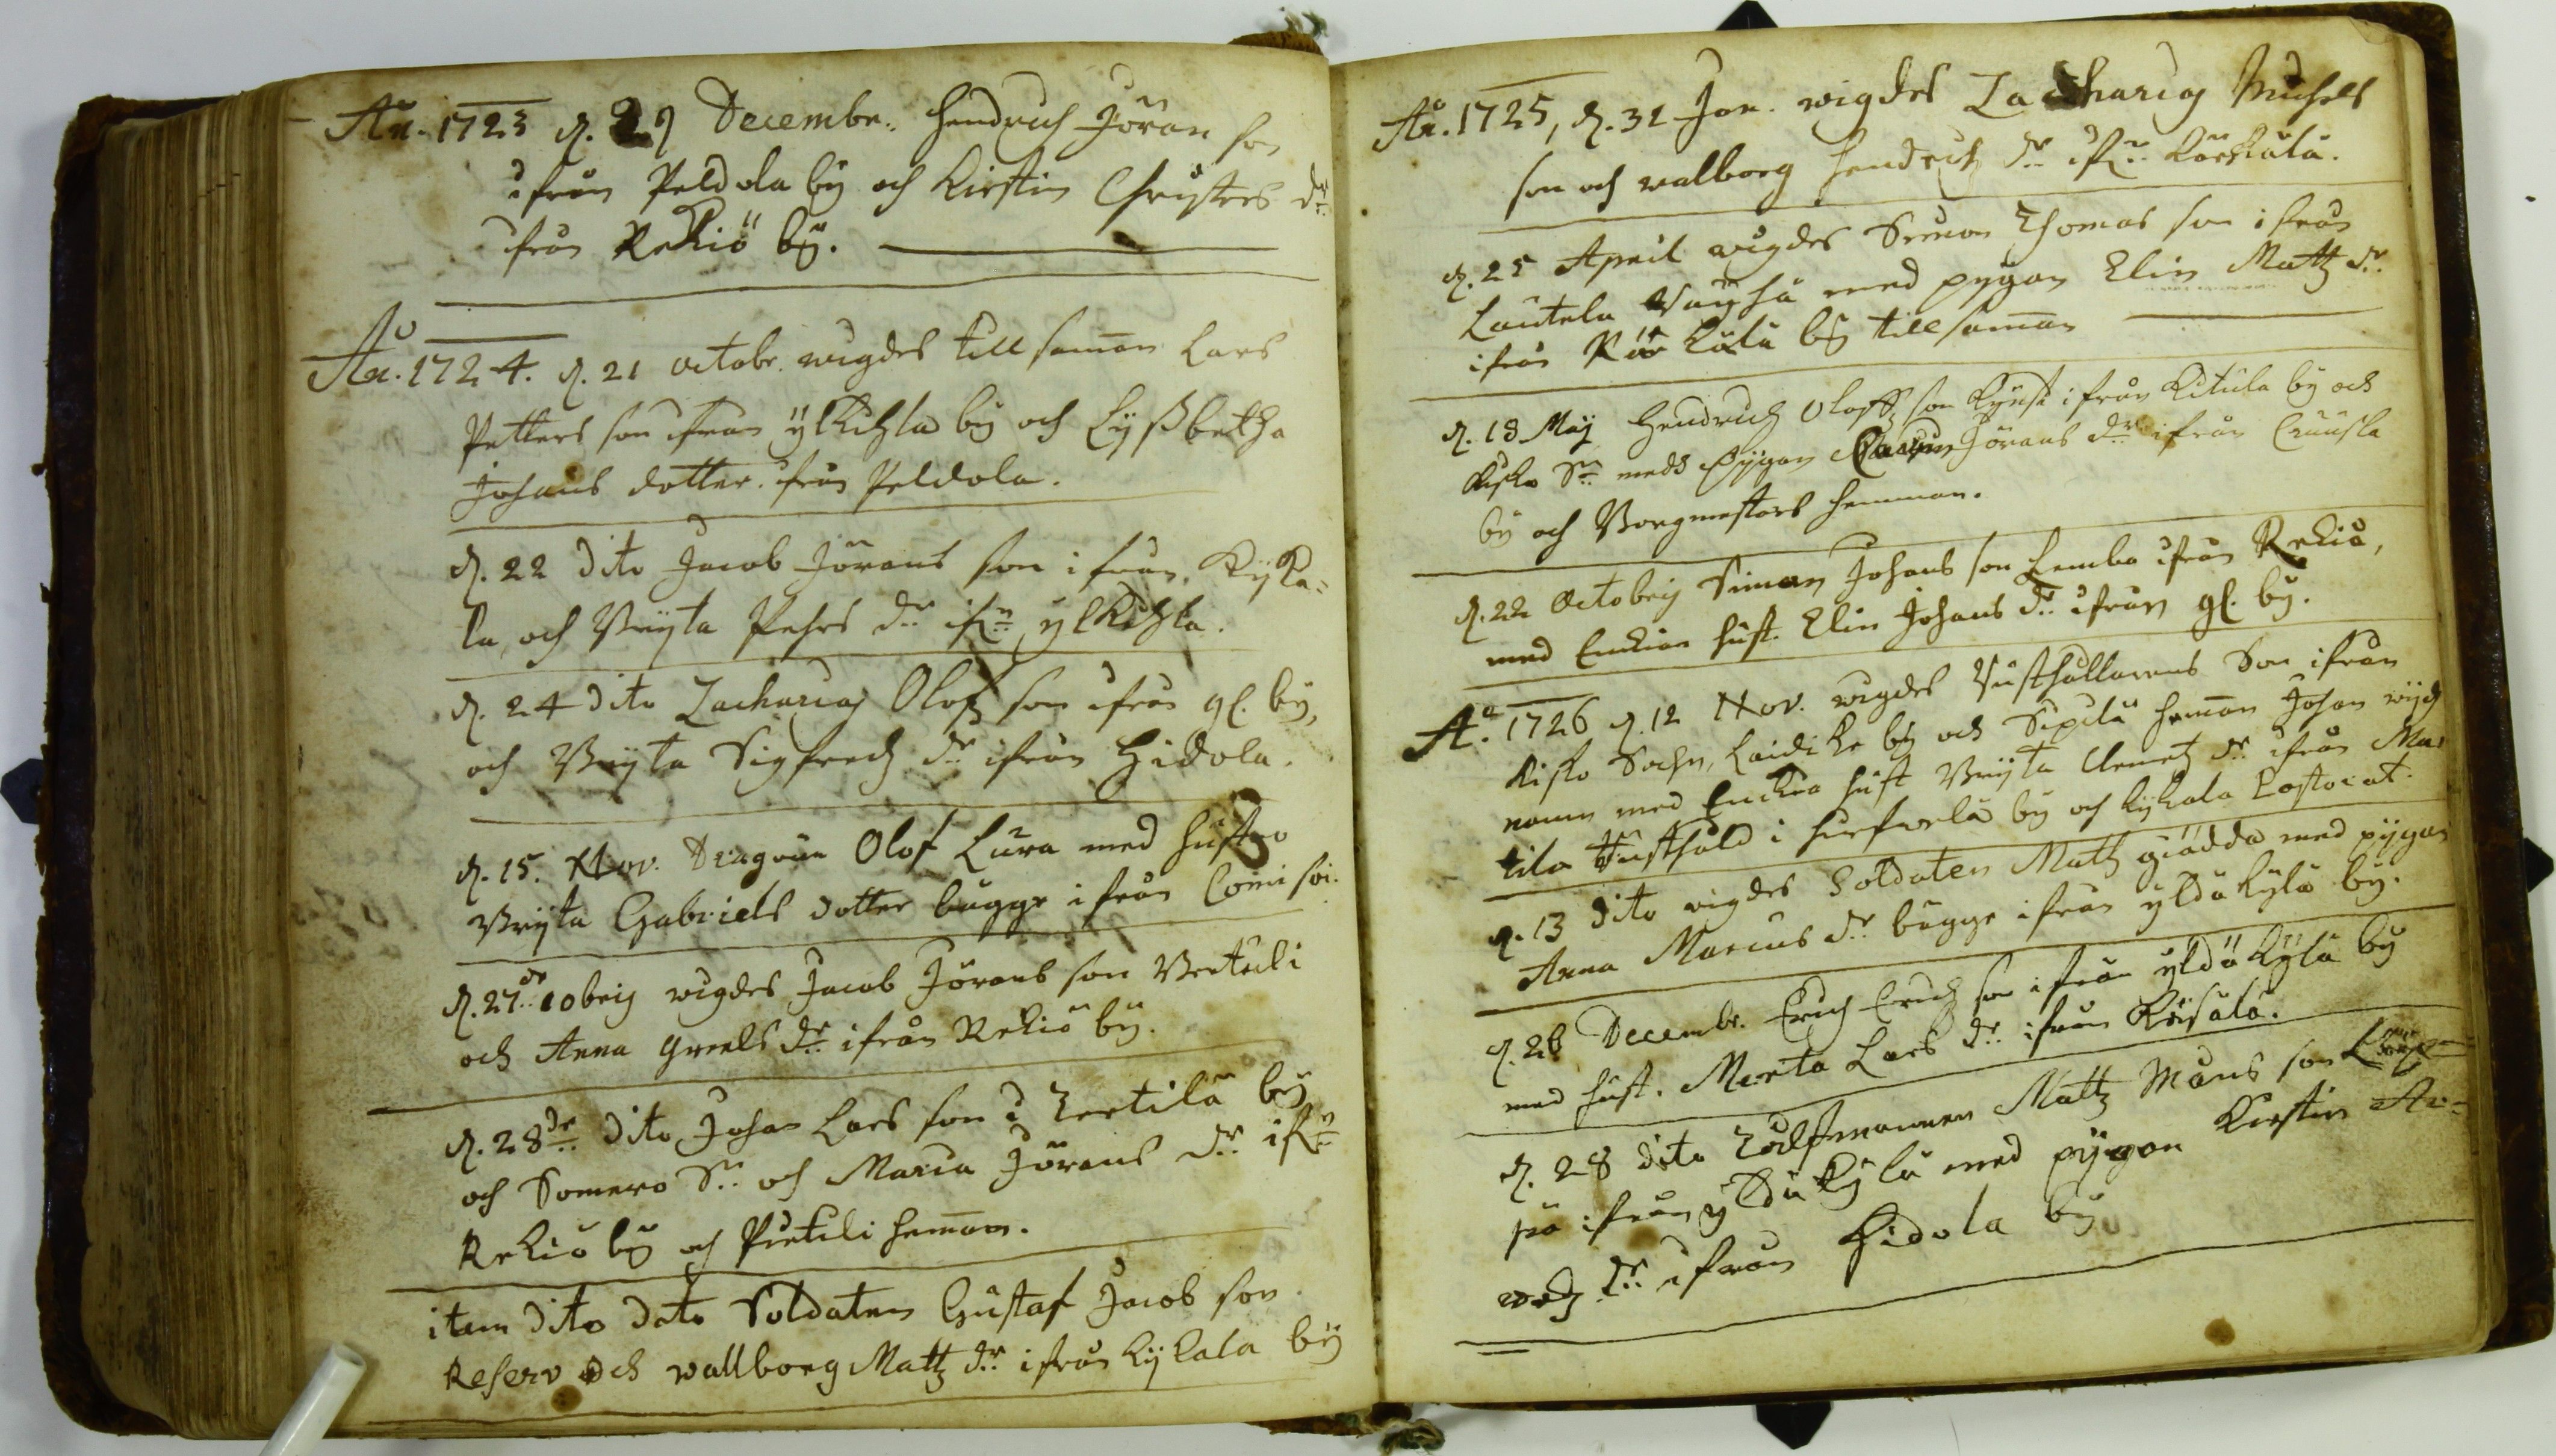 Aō. 1723 d. 29 Decembr. Hendrich Jöran son
ifrån Peldola by och Kirstin Christers dr
ifrån Rekiö by.
Aō. 1724. d. 21 octobr. wigdes till saman Lars
Petters son ifrån ylkihla by och Lyßbetha
Johans dotter ifrån Peldola.
d. 22 dito Jacob Jörans son ifrån Kyka=
la, och Bryta Pehrs dr ifrn ylkihla.
d. 24 dito Zacharias Olofz son ifrån gl. by,
och Bryta Sigfredz dr ifrån Hidola.
d. 15. Nov. Dragoun Olof Lura med hustro
Bryta Gabriels dotter bugge ifrån
d. 27de 10bris wigdes Jacob Jörans son Bertuli
och Anna Greels dr ifrån Rekiö by.
d. 28de dito Johan Lars son i Tertilä by
och Somero Sn och Maria Jörans dr ifrn
Rekiö by och Pietili heman.
item dito dato Soldaten Gustaf Jacob son
Reserv och wallborg Matz dr ifrån Kykala by
Aō. 1725, d. 31 Jan. wigdes Zacharias Michels
son och walborg Hendrichz dr ifrn Körkälä.
d. 25 April wigdes Simon Thomas son ifrån
Lautela med pygan Elin Matz dr
ifrån Körkälä by till saman
d. 18 Maij Hendrich Olofz son ifrån Kitula by och
Kisko Sn medh Pygan Jörans dr ifrån
by och Borgmestars hemman.
d. 22 Octobris Simon Johans son Lembo ifrån Rekiö,
med Enkian hust. Elin Johans dr ifrån gl. by.
Aō. 1726 d. 12 Nov. wigdes Rusthållarens Son ifrån
Kisko Sochn, Laidike by och Sipilä heman Johan
med Enckia hust Bryta Clemetz dr ifrån Mar
tila Rusthåld i by och Kykala
d. 13 dito wigdes Soldaten Matz giädda med pygan
Anna Marcus dr bugge ifrån yldäkylä by.
d. 26 Decembr. Erich Erichz son ifrån yldäkylä by
med hust. Merta Lars dr ifrån
d. 28 dito Tolfmannen Mattz Måns son
pä ifrån yldäkylä med pygan Kirstin An=
dr ifrån Hidola by